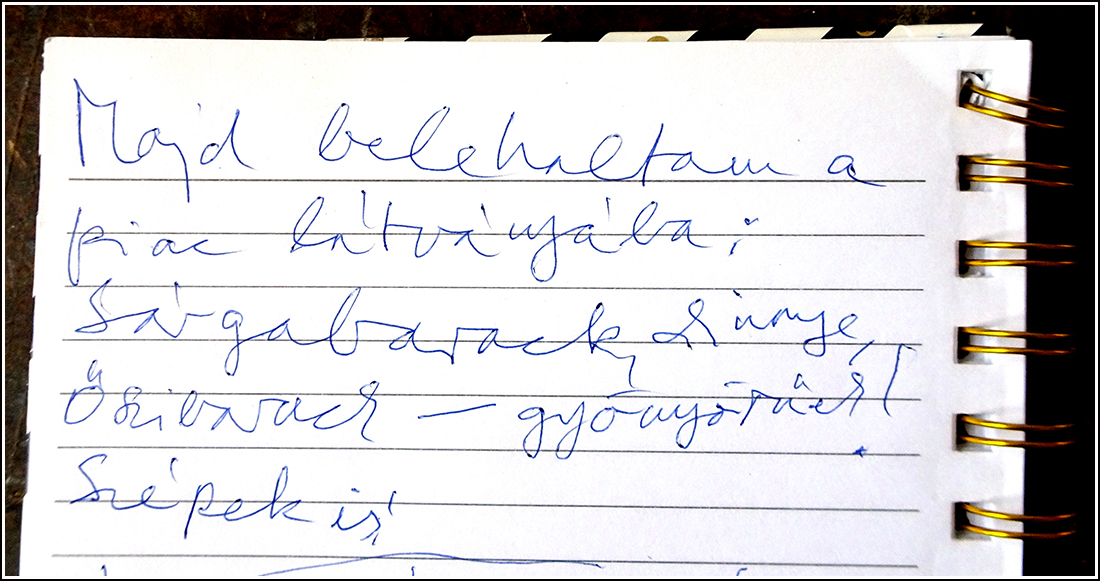 Majd belehaltam a
piac látványába:
Sárgabarack, dinnye,
Őszibarack — gyönyörűek!
Szépek is!